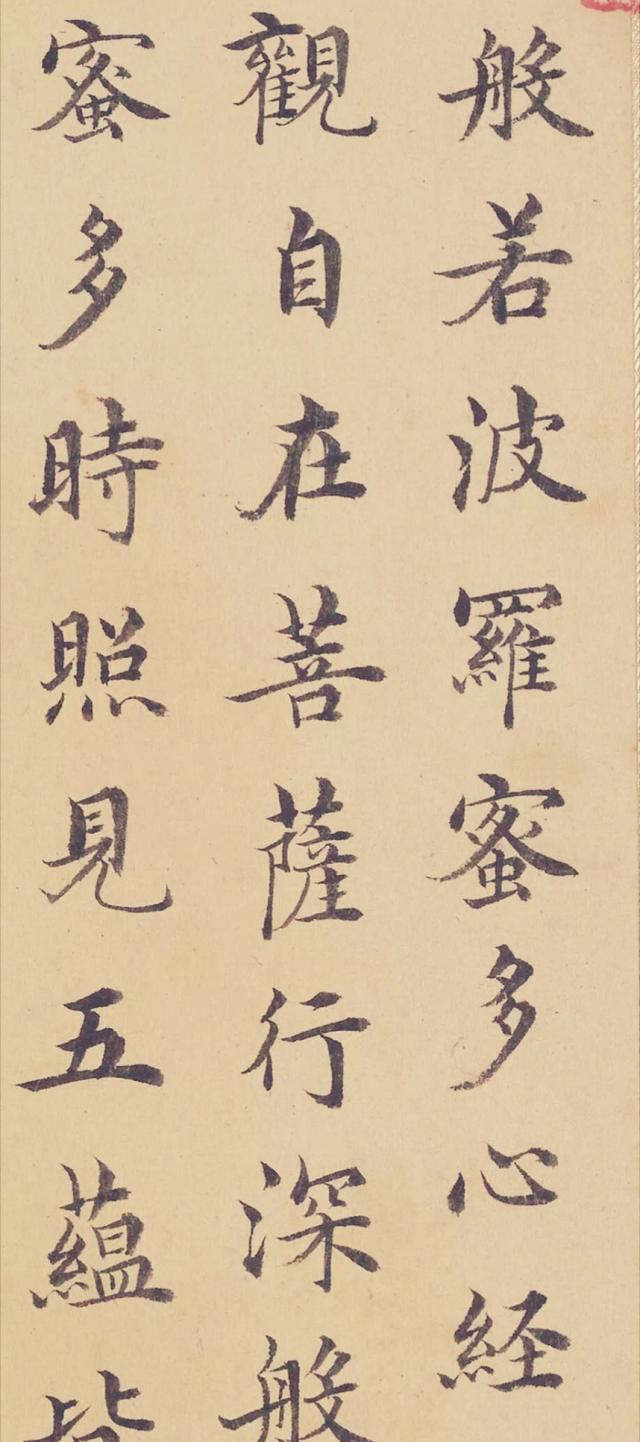 般若波羅蜜多心経
觀自在菩薩行深般
蜜多時照見五蘊皆